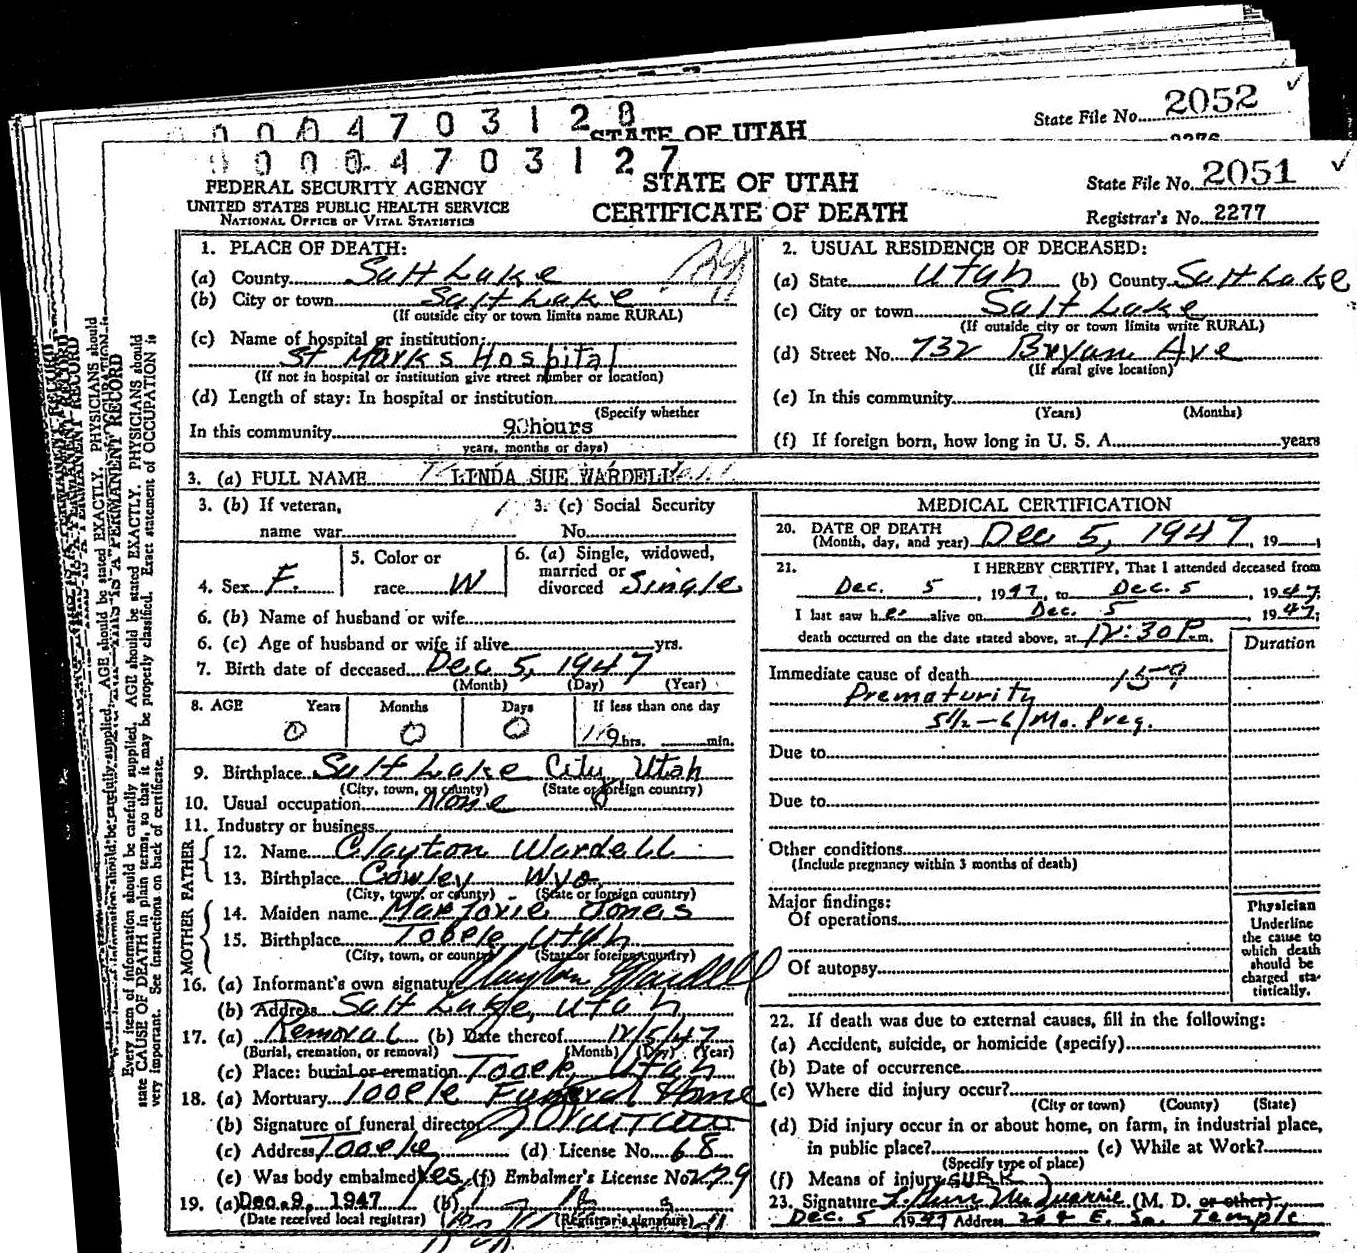 0004703128
STATE OF UTAH
State File No. 2052
0004703127
STATE OF UTAH
State File No. 2051
FEDERAL SECURITY AGENCY
UNITED STATES PUBLIC HEALTH SERVICE
NATIONAL OFFICE OF VITAL STATISTICS
CERTIFICATE OF DEATH
Registrar's No. 2277
1. PLACE OF DEATH:
(a) County Salt Lake
(b) City or town Salt Lake
(If outside city or town limits name RURAL)
(c) Name of hospital or institution:
St Marks Hospital
(If not in hospital or institution give street number or location)
(d) Length of stay: In hospital or institution
(Specify whether
In this community hours
years, months or days)
2. USUAL RESIDENCE OF DECEASED:
(a) State Utah (b) County Salt Lake
(c) City or town Salt Lake
(If outside city or town limits write RURAL)
(d) Street No. 732 Bryan Ave
(If rural give location)
(e) In this community
(Years) (Months)
(f) If foreign born, how long in U. S. A. years
3. (a) FULL NAME LINDA SUE WARDELL
3. (b) If veteran,
name war
3. (c) Social Security
No.
4. Sex F.
5. Color or
race W
6. (a) Single, widowed,
married or
divorced Single
6. (b) Name of husband or wife
6. (c) Age of husband or wife if alive yrs.
7. Birth date of deceased Dec 5, 1947
(Month) (Day) (Year)
8. AGE Years Months Days If less than one day
0 0 0 hrs. min.
9. Birthplace Salt Lake City Utah
(City, town, or county) (State or foreign country)
10. Usual occupation None
11. Industry or business
FATHER
12. Name Clayton Wardell
13. Birthplace Cowley Wyo.
(City, town, or county) (State or foreign country)
MOTHER
14. Maiden name Marjorie Jones
15. Birthplace Tooele, Utah
(City, town, or county) (State or foreign country)
16. (a) Informant's own signature Clayton Wardell
(b) Address Salt Lake, Utah
17. (a) Removal (b) Date thereof 12/5/47
(Burial, cremation, or removal) (Month) (Day) (Year)
(c) Place: burial or cremation Tooele, Utah
18. (a) Mortuary Tooele Funeral Home
(b) Signature of funeral director
(c) Address Tooele (d) License No. 68
(e) Was body embalmed Yes (f) Embalmer's License No. 279
19. (a) Dec. 9, 1947 (b)
(Date received local registrar) (Registrar's signature)
MEDICAL CERTIFICATION
20. DATE OF DEATH
(Month, day, and year) Dec 5, 1947, 19
21. I HEREBY CERTIFY, That I attended deceased from
Dec. 5, 1947, to Dec. 5, 1947;
I last saw her alive on Dec. 5, 1947;
death occurred on the date stated above, at 12:30 P.m.
Duration
Immediate cause of death 159
Prematurity
5½-6 Mo. Preg.
Due to
Due to
Other conditions
(Include pregnancy within 3 months of death)
Major findings:
Of operations
Of autopsy
Physician
Underline
the cause to
which death
should be
charged sta-
tistically.
22. If death was due to external causes, fill in the following:
(a) Accident, suicide, or homicide (specify)
(b) Date of occurrence
(c) Where did injury occur?
(City or town) (County) (State)
(d) Did injury occur in or about home, on farm, in industrial place,
in public place? (e) While at Work?
(Specify type of place)
(f) Means of injury
23. Signature (M. D. or other)
Dec. 5 1947 Address E. So. Temple
Every item of information should be carefully supplied. AGE should be stated EXACTLY. PHYSICIANS should
state CAUSE OF DEATH in plain terms, so that it may be properly classified. Exact statement of OCCUPATION is
very important. See instructions on back of certificate.